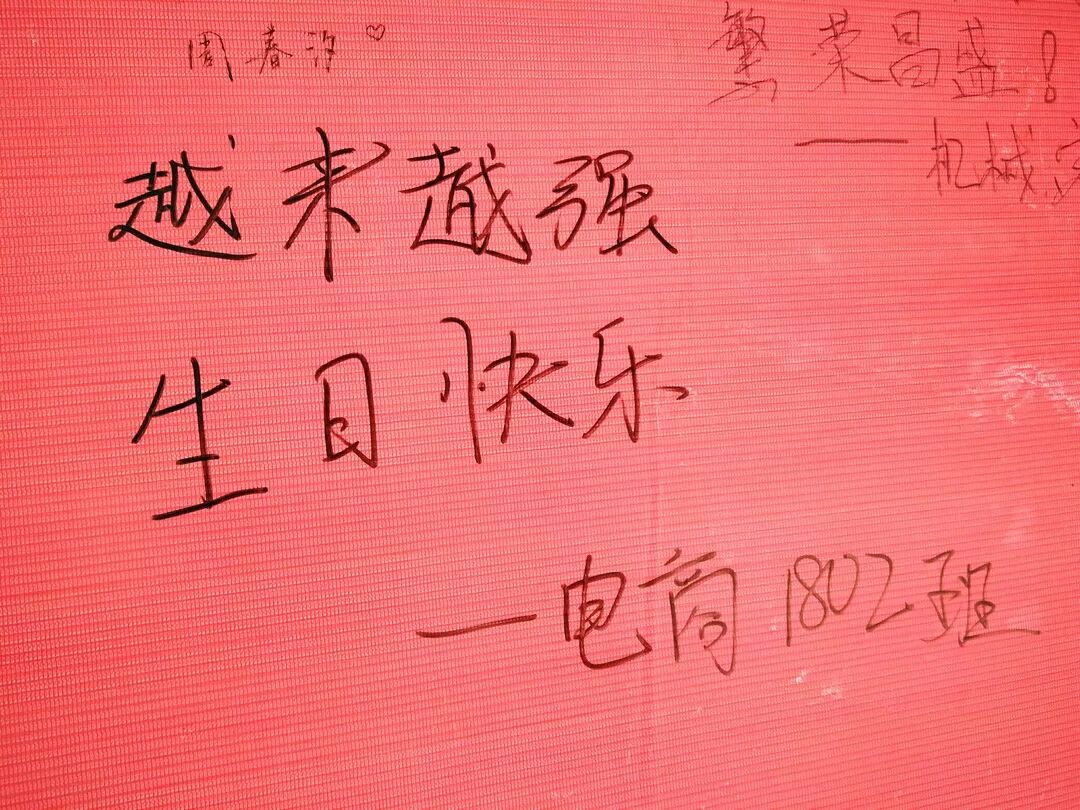 周春汐♡
繁荣昌盛!
——机械
越来越强
生日快乐
—电商1802班